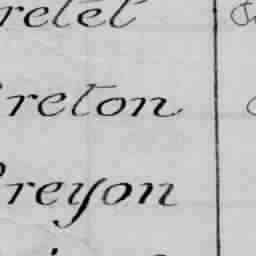 retet
reton
reyon